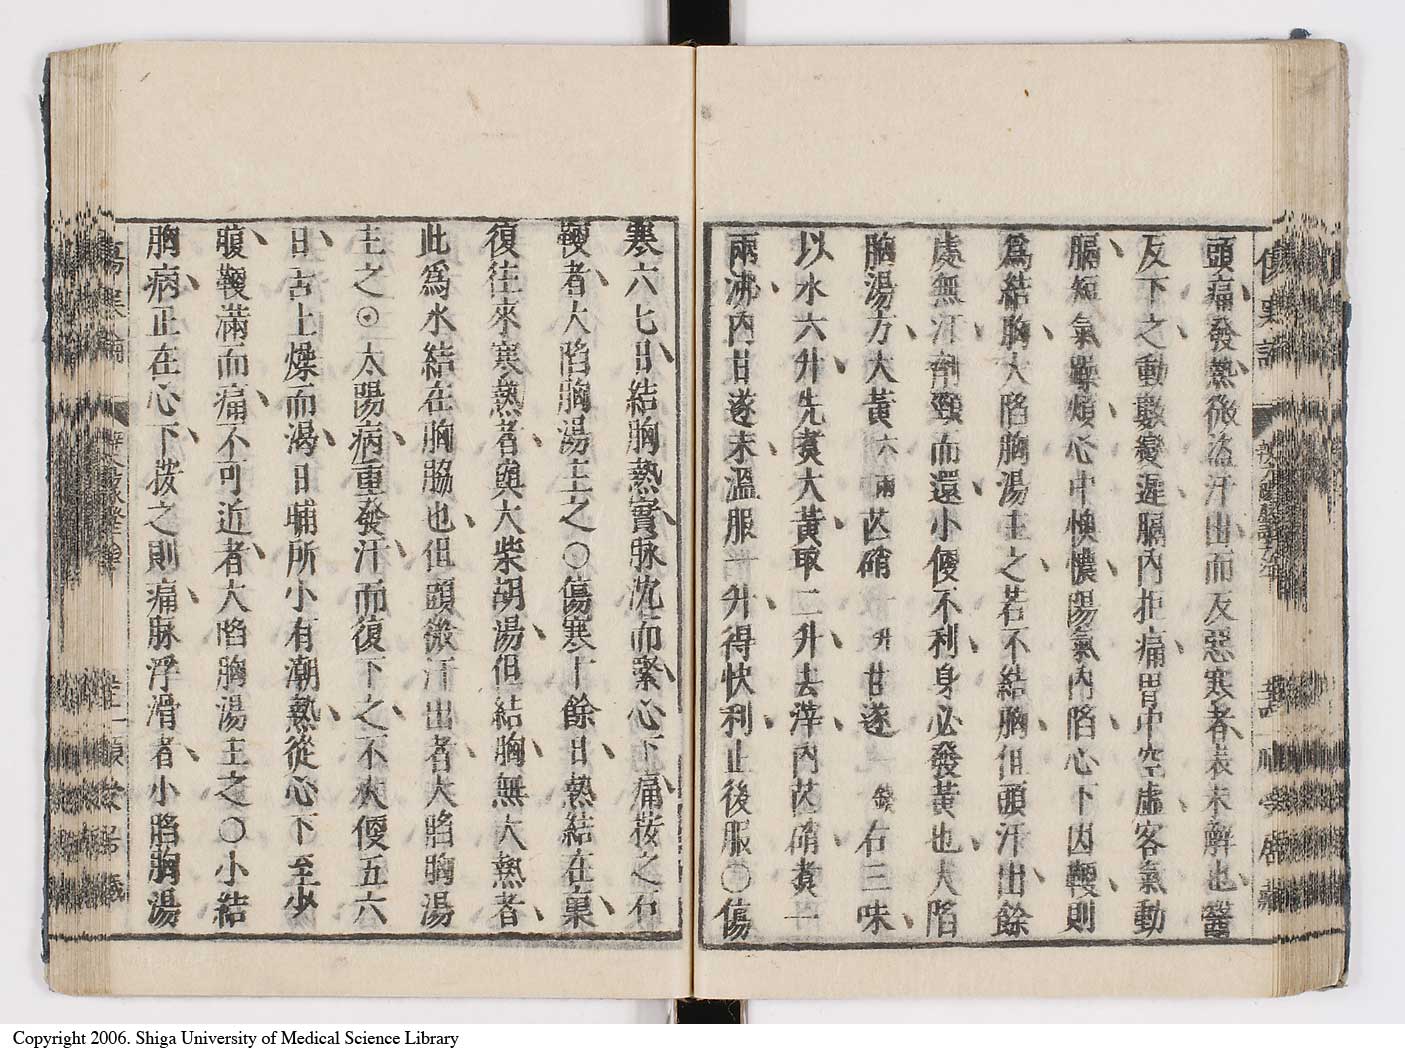 頭痛發熱微盜汗出而反惡寒者表未解也醫
反下之動數變遲膈內拒痛胃中空虛客氣動
膈短氣躁煩心中懊憹陽氣內陷心下因鞕則
爲結胸大陷胸湯主之若不結胸但頭汗出餘
處無汗劑頸而還小便不利身必發黃也大陷
胸湯方大黃六兩芒硝升甘遂錢右三味
以水六升先煮大黃取二升去滓內芒硝煮一
兩沸內甘遂末溫服一升得快利止後服〇傷
寒六七日結胸熱實脉沈而緊心下痛按之石
鞕者大陷胸湯主之〇傷寒十餘日熱結在裏
復往來寒熱者與大柴胡湯但結胸無大熱者
此爲水結在胸脇也但頭微汗出者大陷胸湯
主之⊙太陽病重發汗而復下之不大便五六
日舌上燥而渴日晡所小有潮熱從心下至少
腹鞕滿而痛不可近者大陷胸湯主之〇小結
胸病正在心下按之則痛脉浮滑者小陷胸湯
Copyright 2006. Shiga University of Medical Science Library